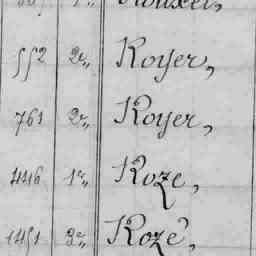 552 2e,, Royer,
761 2e,, Royer,
446 1e,, Roze,
1451 2e,, Rozé,